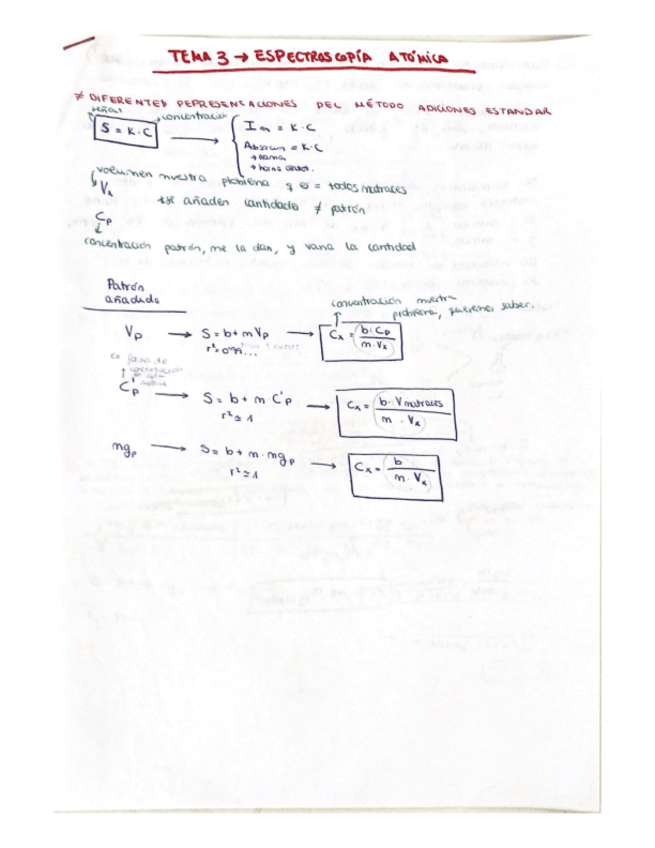 TEMA 3 → ESPECTROSCOPÍA ATÓMICA
≠ DIFERENTES REPRESENTACIONES DEL MÉTODO ADICIONES ESTANDAR
señal concentración
S = K·C → { I em = K·C
Absorción = K·C
→ llama
→ horno
volumen muestra problema y es = todos matraces
Vx
se añaden cantidades ≠ patrón
Cp
concentración patrón, me la dan, y varía la cantidad
Patrón añadido
concentración muestra problema, queremos saber.
Vp → S = b + m Vp → Cx = b·Cp / m·Vx
C'p → S = b + m·C'p → Cx = b·Vmatraces / m·Vx
r² ≃ 1
mgp → S = b + m·mgp → Cx = b / m·Vx
r² ≃ 1